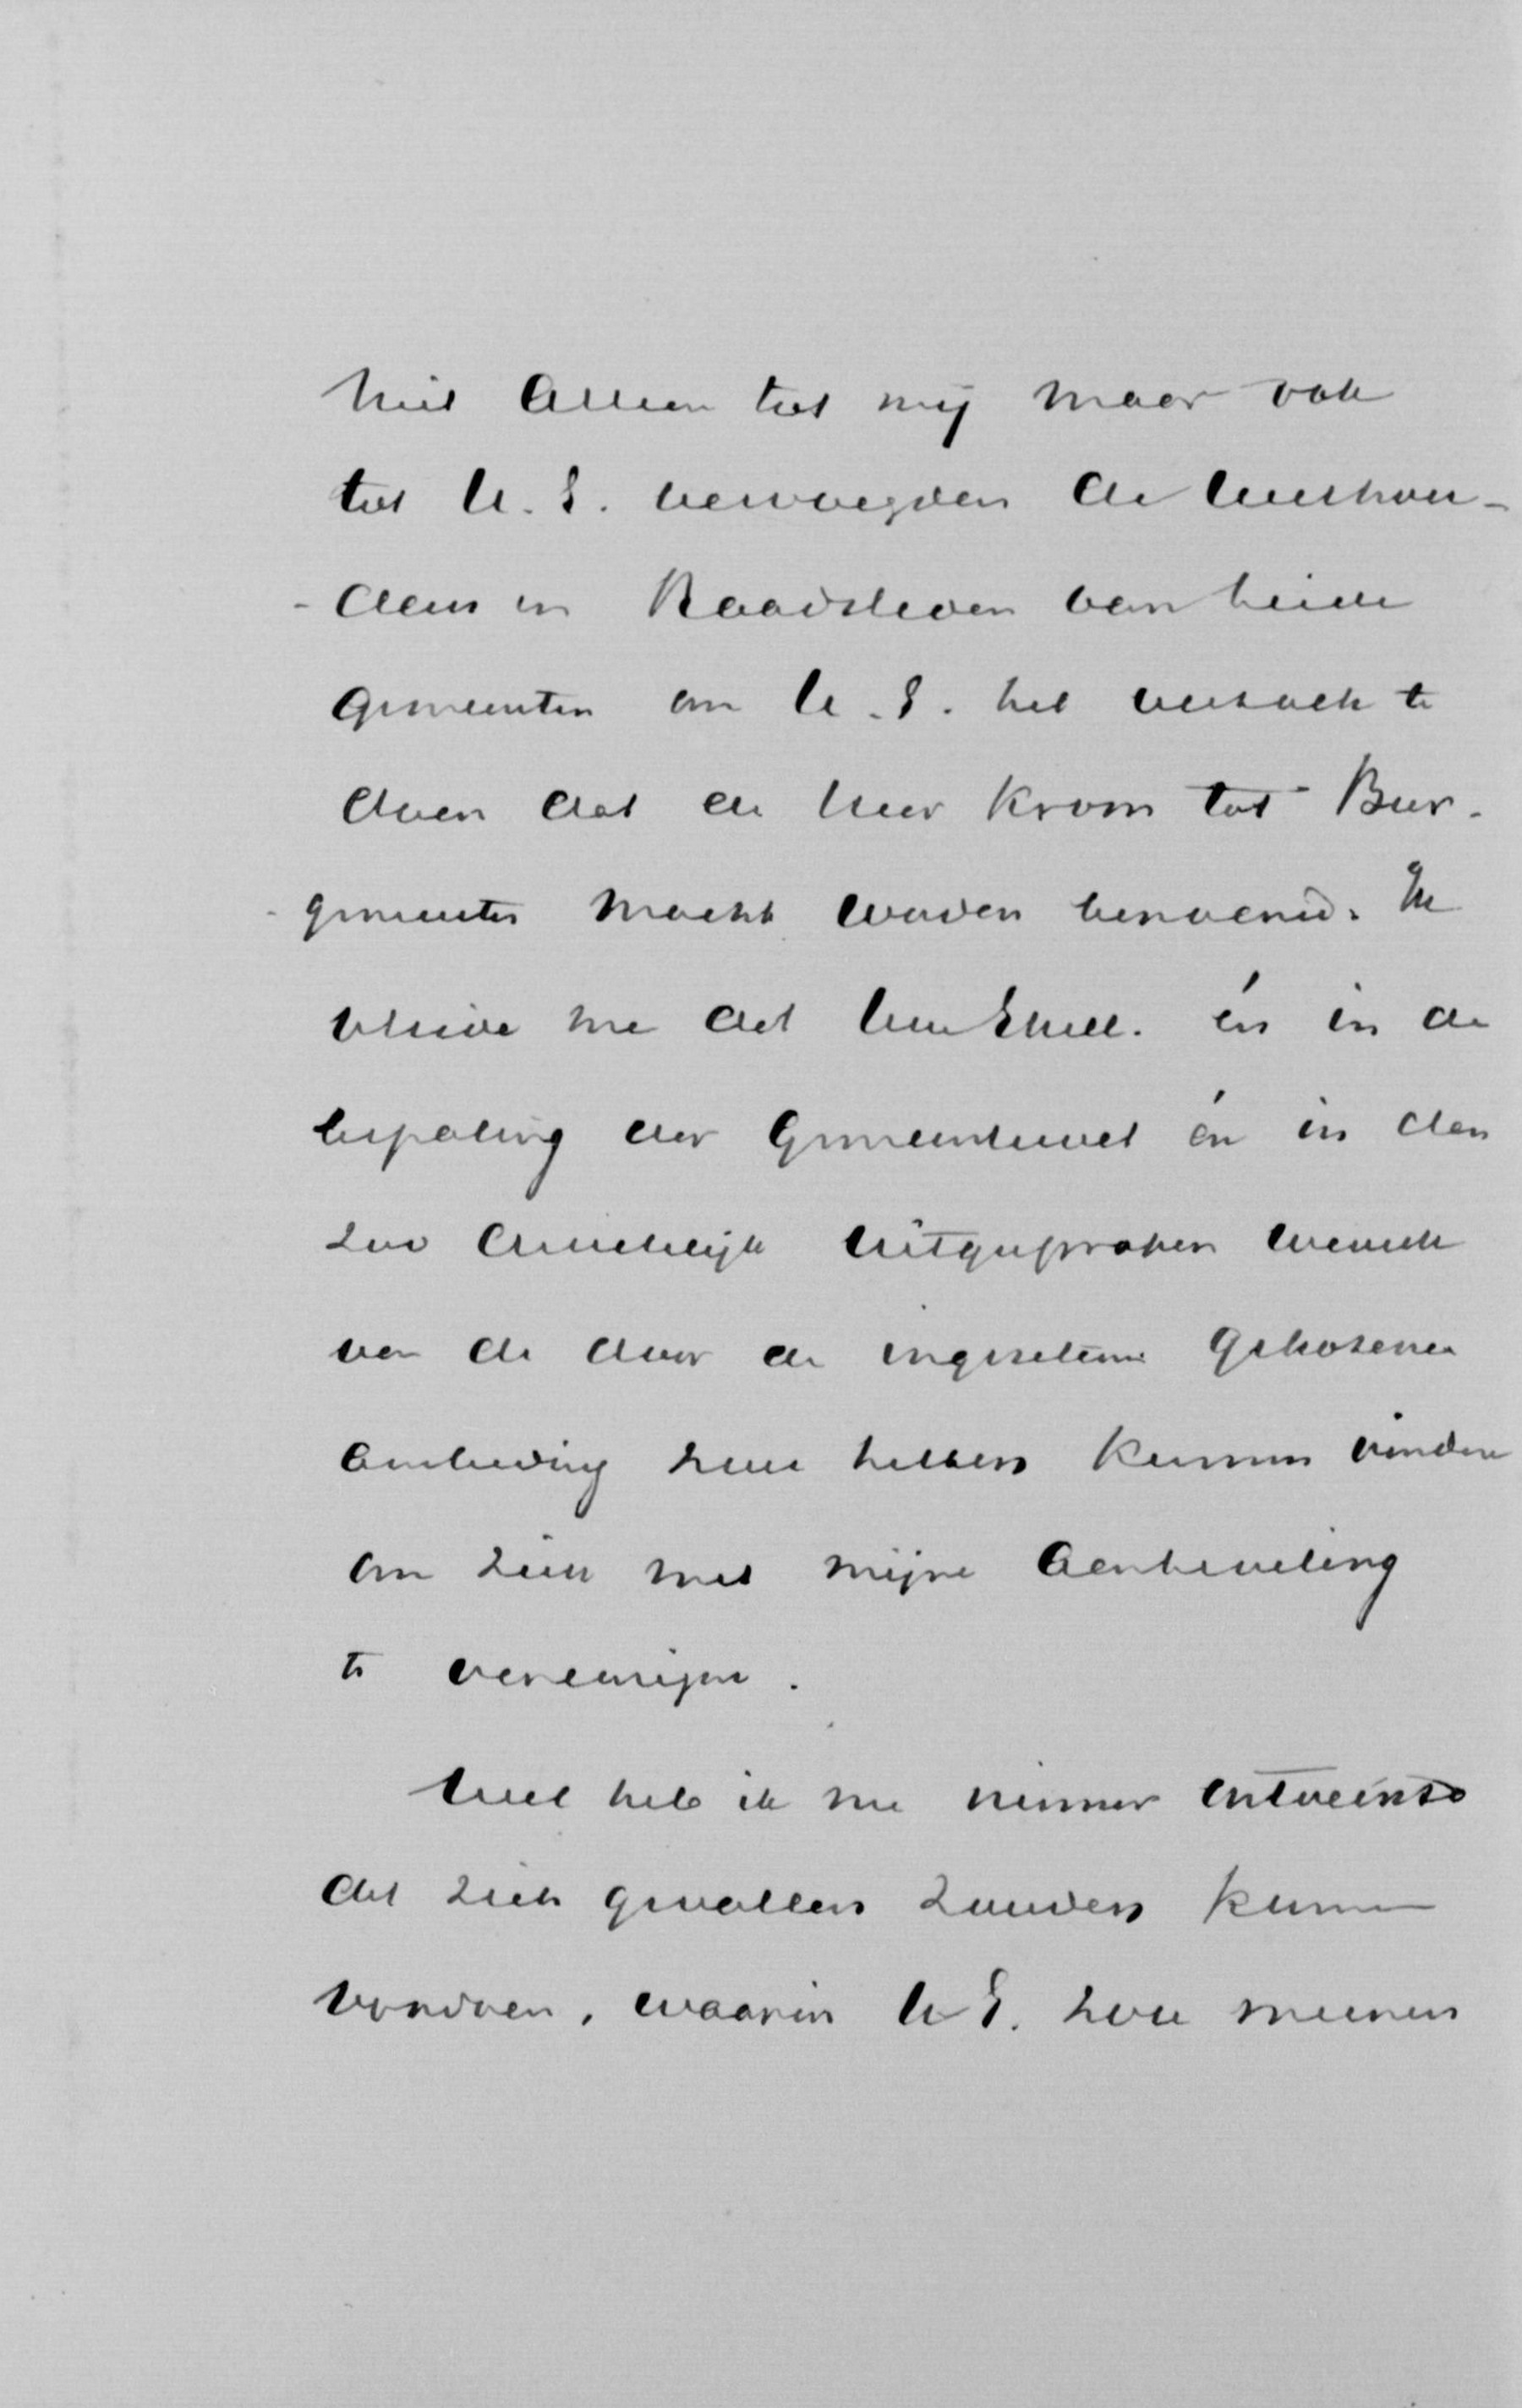 niet alleen tot mij maar ook
tot U.E. vervoegden de Wethou-
-ders en Raadsleden van beide
gemeenten om U.E. het verzoek te
doen dat de heer Krom tot Bur-
-gemeester mocht worden benoemd. Ik
vleide me dat Uwe Excell. én in de
bepaling der Gemeentewet én in den
zoo duidelijk uitgesproken wensch
van de door de ingezetenen gekozenen
aanleiding zou hebben kunnen vinden
om zich met mijne aanbeveling
te vereenigen.
Wel heb ik me nimmer ontveinsd
dat zich gevallen zouden kunnen
voordoen, waarin U.E. zou meenen